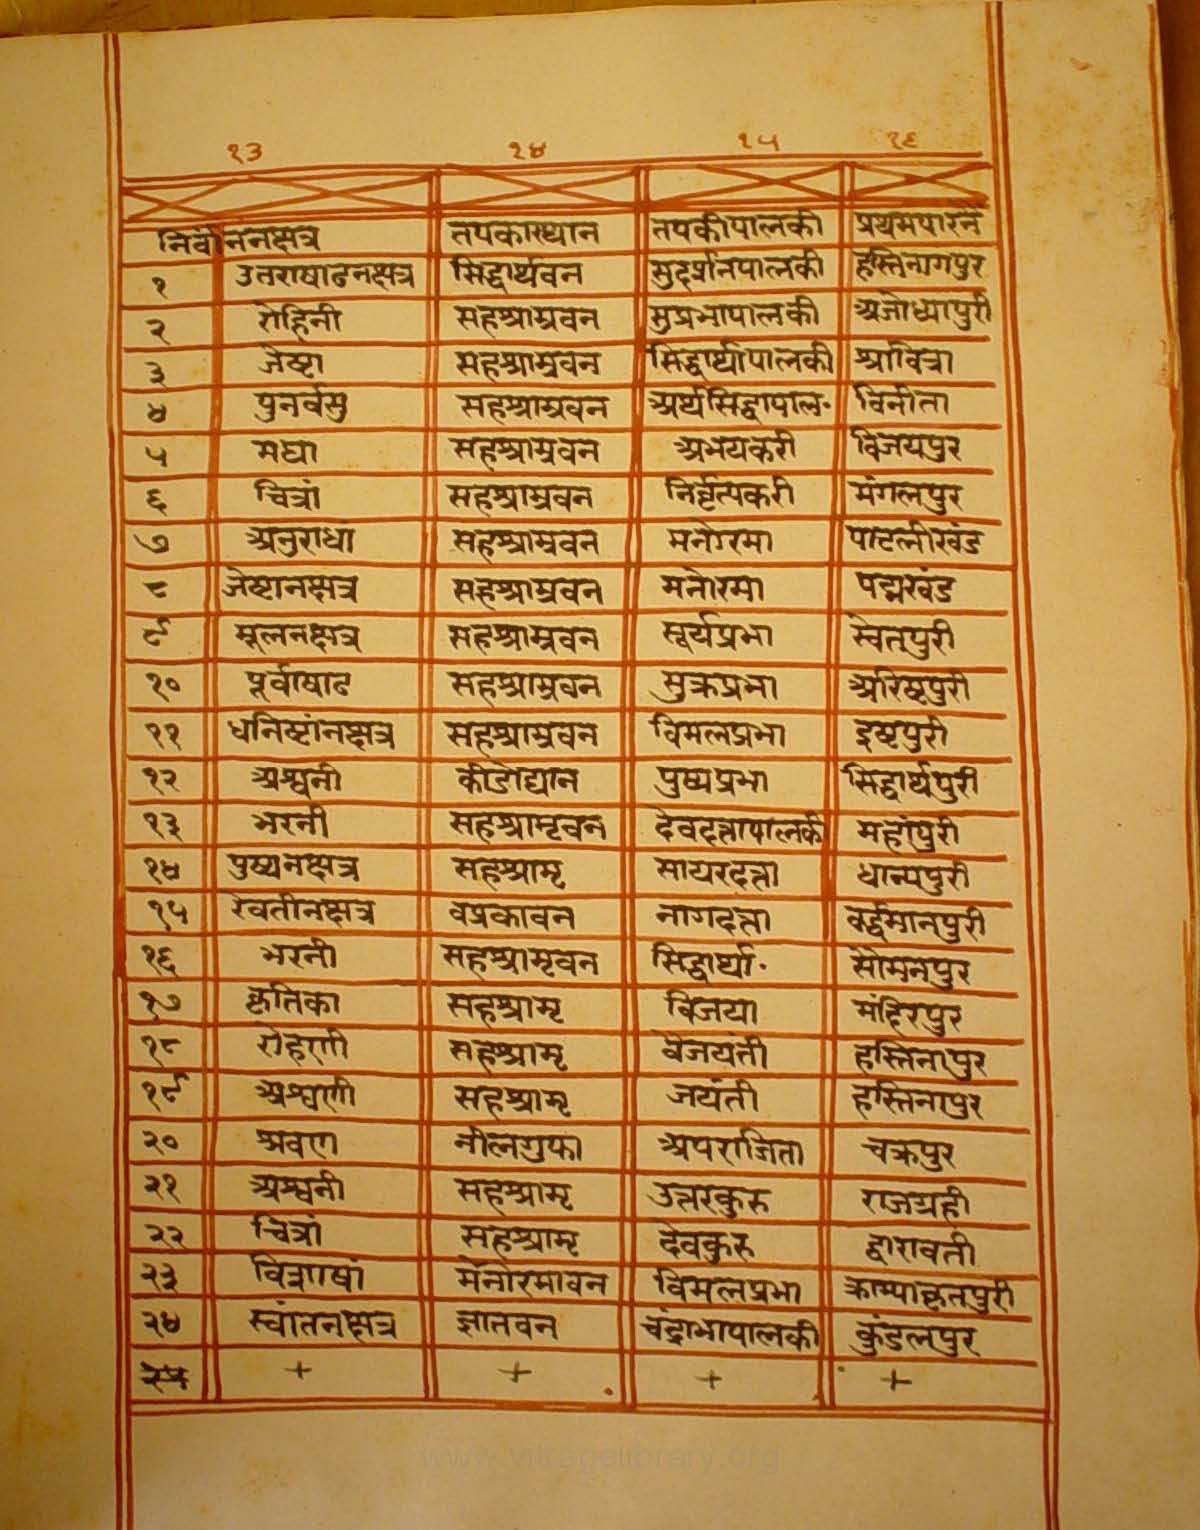 १३ १४ १५ १६
निर्वाननक्षत्र तपकास्थान तपकीपालकी प्रथमपारने
१ उतराषाढनक्षत्र सिद्धार्थवन सुदर्शनपालकी हस्तिनागपुर
२ रोहिनी सहश्राम्रवन सुप्रभापालकी अजोध्यापुरी
३ जेष्टा सहश्राम्रवन सिद्धार्थापालकी श्रावित्रा
४ पुनर्वसु सहश्राम्रवन अर्थसिद्धापाल॰ विनीता
५ मघा सहश्राम्रवन अभयकरी विजयपुर
६ चित्रां सहश्राम्रवन निर्वृत्यकरी मंगलपुर
७ अनुराधा सहश्राम्रवन मनोरमा पाटलीखंड
८ जेष्टानक्षत्र सहश्राम्रवन मनोरमा पद्मखंड
९ मूलनक्षत्र सहश्राम्रवन सूर्यप्रभा स्वेतपुरी
१० पूर्वाषाढ सहश्राम्रवन सुक्रप्रभा अरिष्टपुरी
११ धनिष्टांनक्षत्र सहश्राम्रवन विमलप्रभा इष्टपुरी
१२ अश्वनी क्रीडोद्यान पुष्यप्रभा सिद्धार्थपुरी
१३ भरनी सहश्रामृवन देवदत्तापालकी महांपुरी
१४ पुष्यनक्षत्र सहश्रामृ सायरदत्ता धान्यपुरी
१५ रेवतीनक्षत्र वप्रकावन नागदत्ता वर्द्धमानपुरी
१६ भरनी सहश्रामृवन सिद्धार्था॰ सोमनपुर
१७ कृतिका सहश्रामृ विजया मंदिरपुर
१८ रोहणी सहश्रामृ वैजयंती हस्तिनापुर
१९ अश्वणी सहश्रामृ जयंती हस्तिनापुर
२० श्रवण नीलगुफा अपराजिता चक्रपुर
२१ अश्वनी सहश्रामृ उत्तरकुरु राजग्रही
२२ चित्रां सहश्रामृ देवकुरु द्वारावती
२३ मनोरमावन विमलप्रभा
२४ स्वांतनक्षत्र ज्ञातवन चंद्राभापालकी कुंडलपुर
२५ + + + +
www.vitragelibrary.org